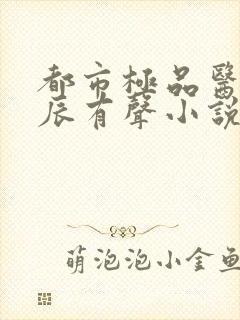 都市極品醫
辰有聲小說
萌泡泡小金魚